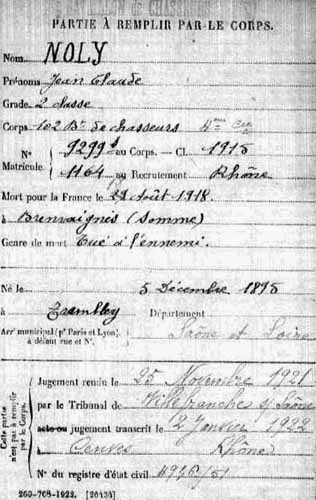 DE CHASSEURS
PARTIE À REMPLIR PAR LE CORPS.
Nom NOLY
Prénoms Jean Claude
Grade 2 classe
Corps 102 Bon de chasseurs 4me Cie
N° 9299 au Corps. — Cl. 1915
Matricule 1164 au Recrutement Rhône
Mort pour la France le 29 Août 1918
à (Somme)
Genre de mort Tué à l'ennemi.
Né le 5 Décembre 1895
à Trambley Département Saône et Loire
Arrt municipal (pr Paris et Lyon),
à défaut rue et N°.
Cette partie
n'est pas à remplir
par le Corps.
Jugement rendu le 25 Novembre 1921
par le Tribunal de Villefranche s/ Saône
acte ou jugement transcrit le 2 Janvier 1922
à Cenves Rhône
N° du registre d'état civil
260-708-1922. [20434]